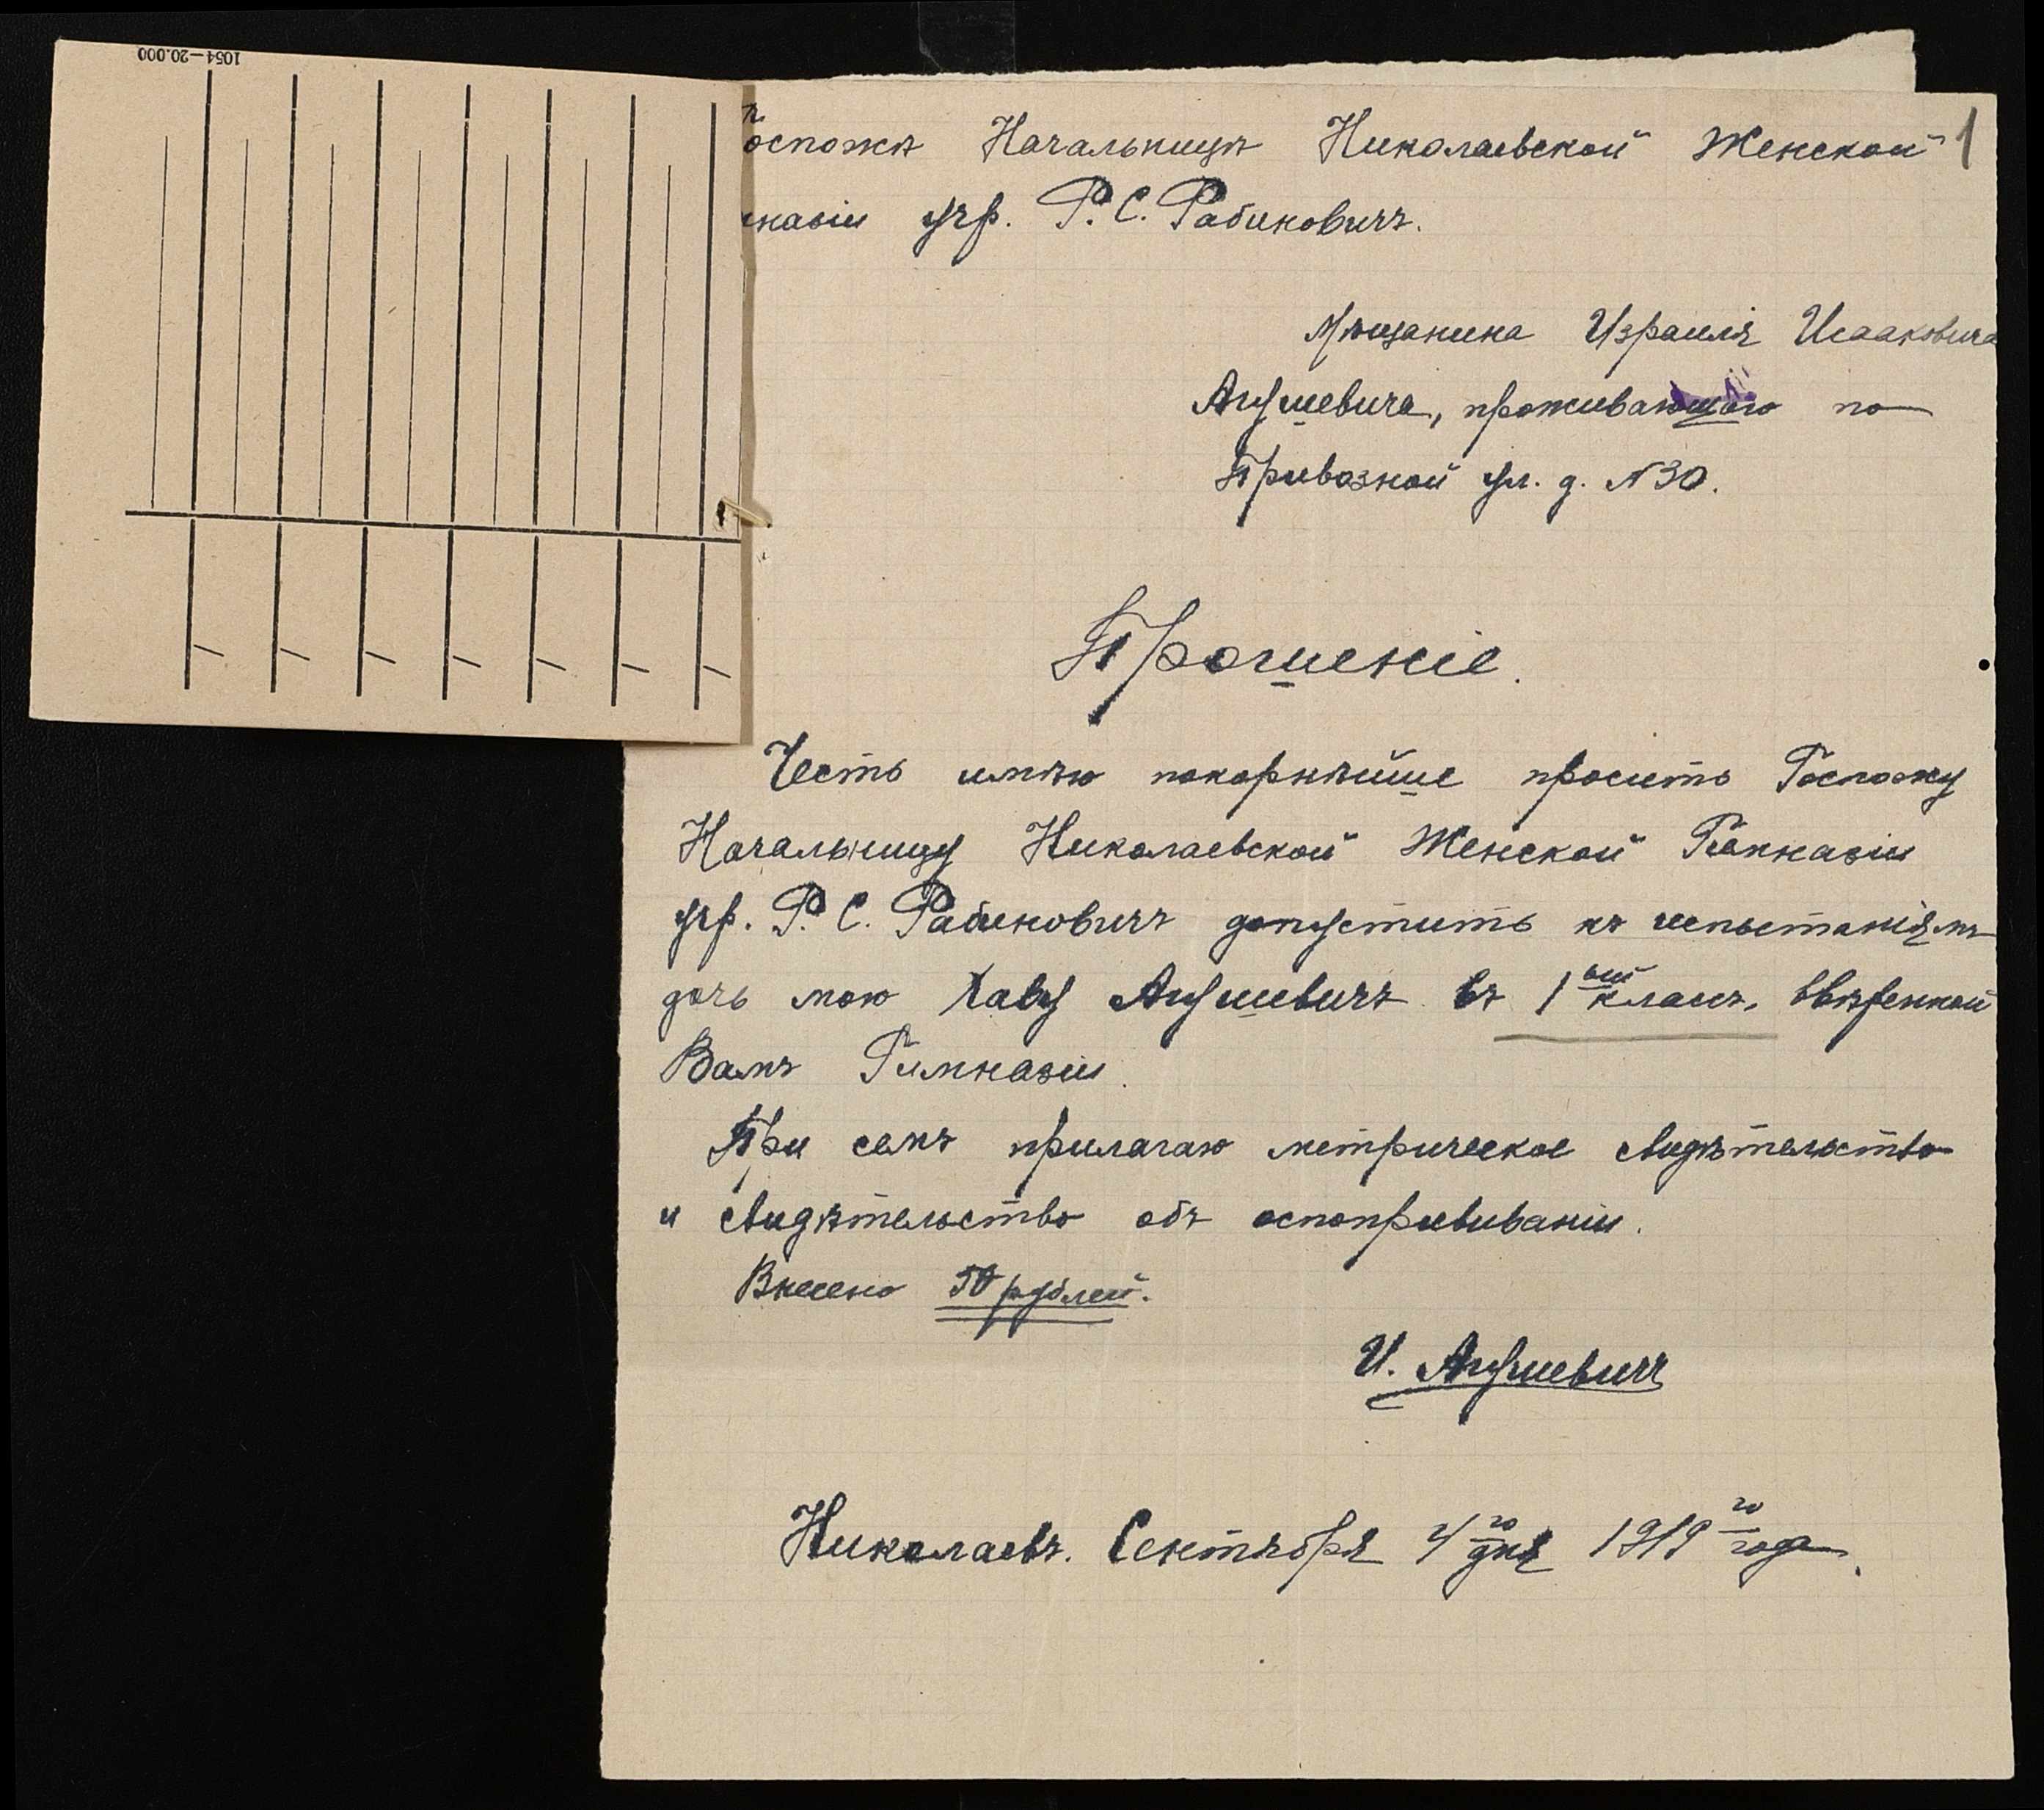 1054—20.000
Госпожѣ Начальницѣ Николаевской Женской 1
мназіи учр. Р. С. Рабиновичъ.
Мѣщанина Израиля Исааковича
Анушевича, проживающаго по
Привозной ул. д. № 30.
Прошеніе.
Честь имѣю покорнѣйше просить Госпожу
Начальницу Николаевской Женской Гимназіи
учр. Р. С. Рабиновичъ допустить къ испытаніямъ
дочь мою Хаву Анушевичъ въ 1ый классъ, ввѣренной
Вамъ Гимназіи.
При семъ прилагаю метрическое свидѣтельство
и свидѣтельство объ оспопрививаніи.
Внесено 50 рублей.
И. Анушевичъ
Николаевъ. Сентября 4го дня 1919го года.